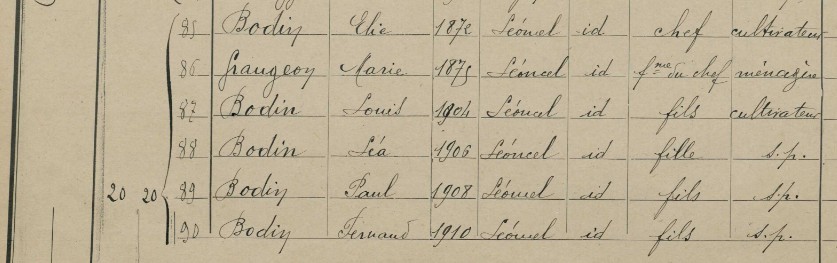 85 Bodin Elie 1872 Léoncel id chef cultivateur
86 Graugeon Marie 1875 Léoncel id fme du chef ménagère
87 Bodin Louis 1904 Léoncel id fils cultivateur
88 Bodin Léa 1906 Léoncel id fille s.p.
20 20 89 Bodin Paul 1908 Léoncel id fils s.p.
90 Bodin Fernand 1910 Léoncel id fils s.p.